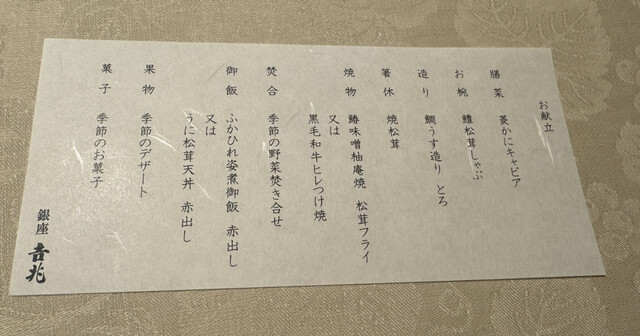 お献立
膳菜 菱かにキャビア
お椀 鱧松茸しゃぶ
造り 鯛うす造り とろ
箸休 焼松茸
焼物 鰆味噌柚庵焼 松茸フライ
又は
黒毛和牛ヒレつけ焼
焚合 季節の野菜焚き合せ
御飯 ふかひれ姿煮御飯 赤出し
又は
うに松茸天丼 赤出し
果物 季節のデザート
菓子 季節のお菓子
銀座 𠮷兆